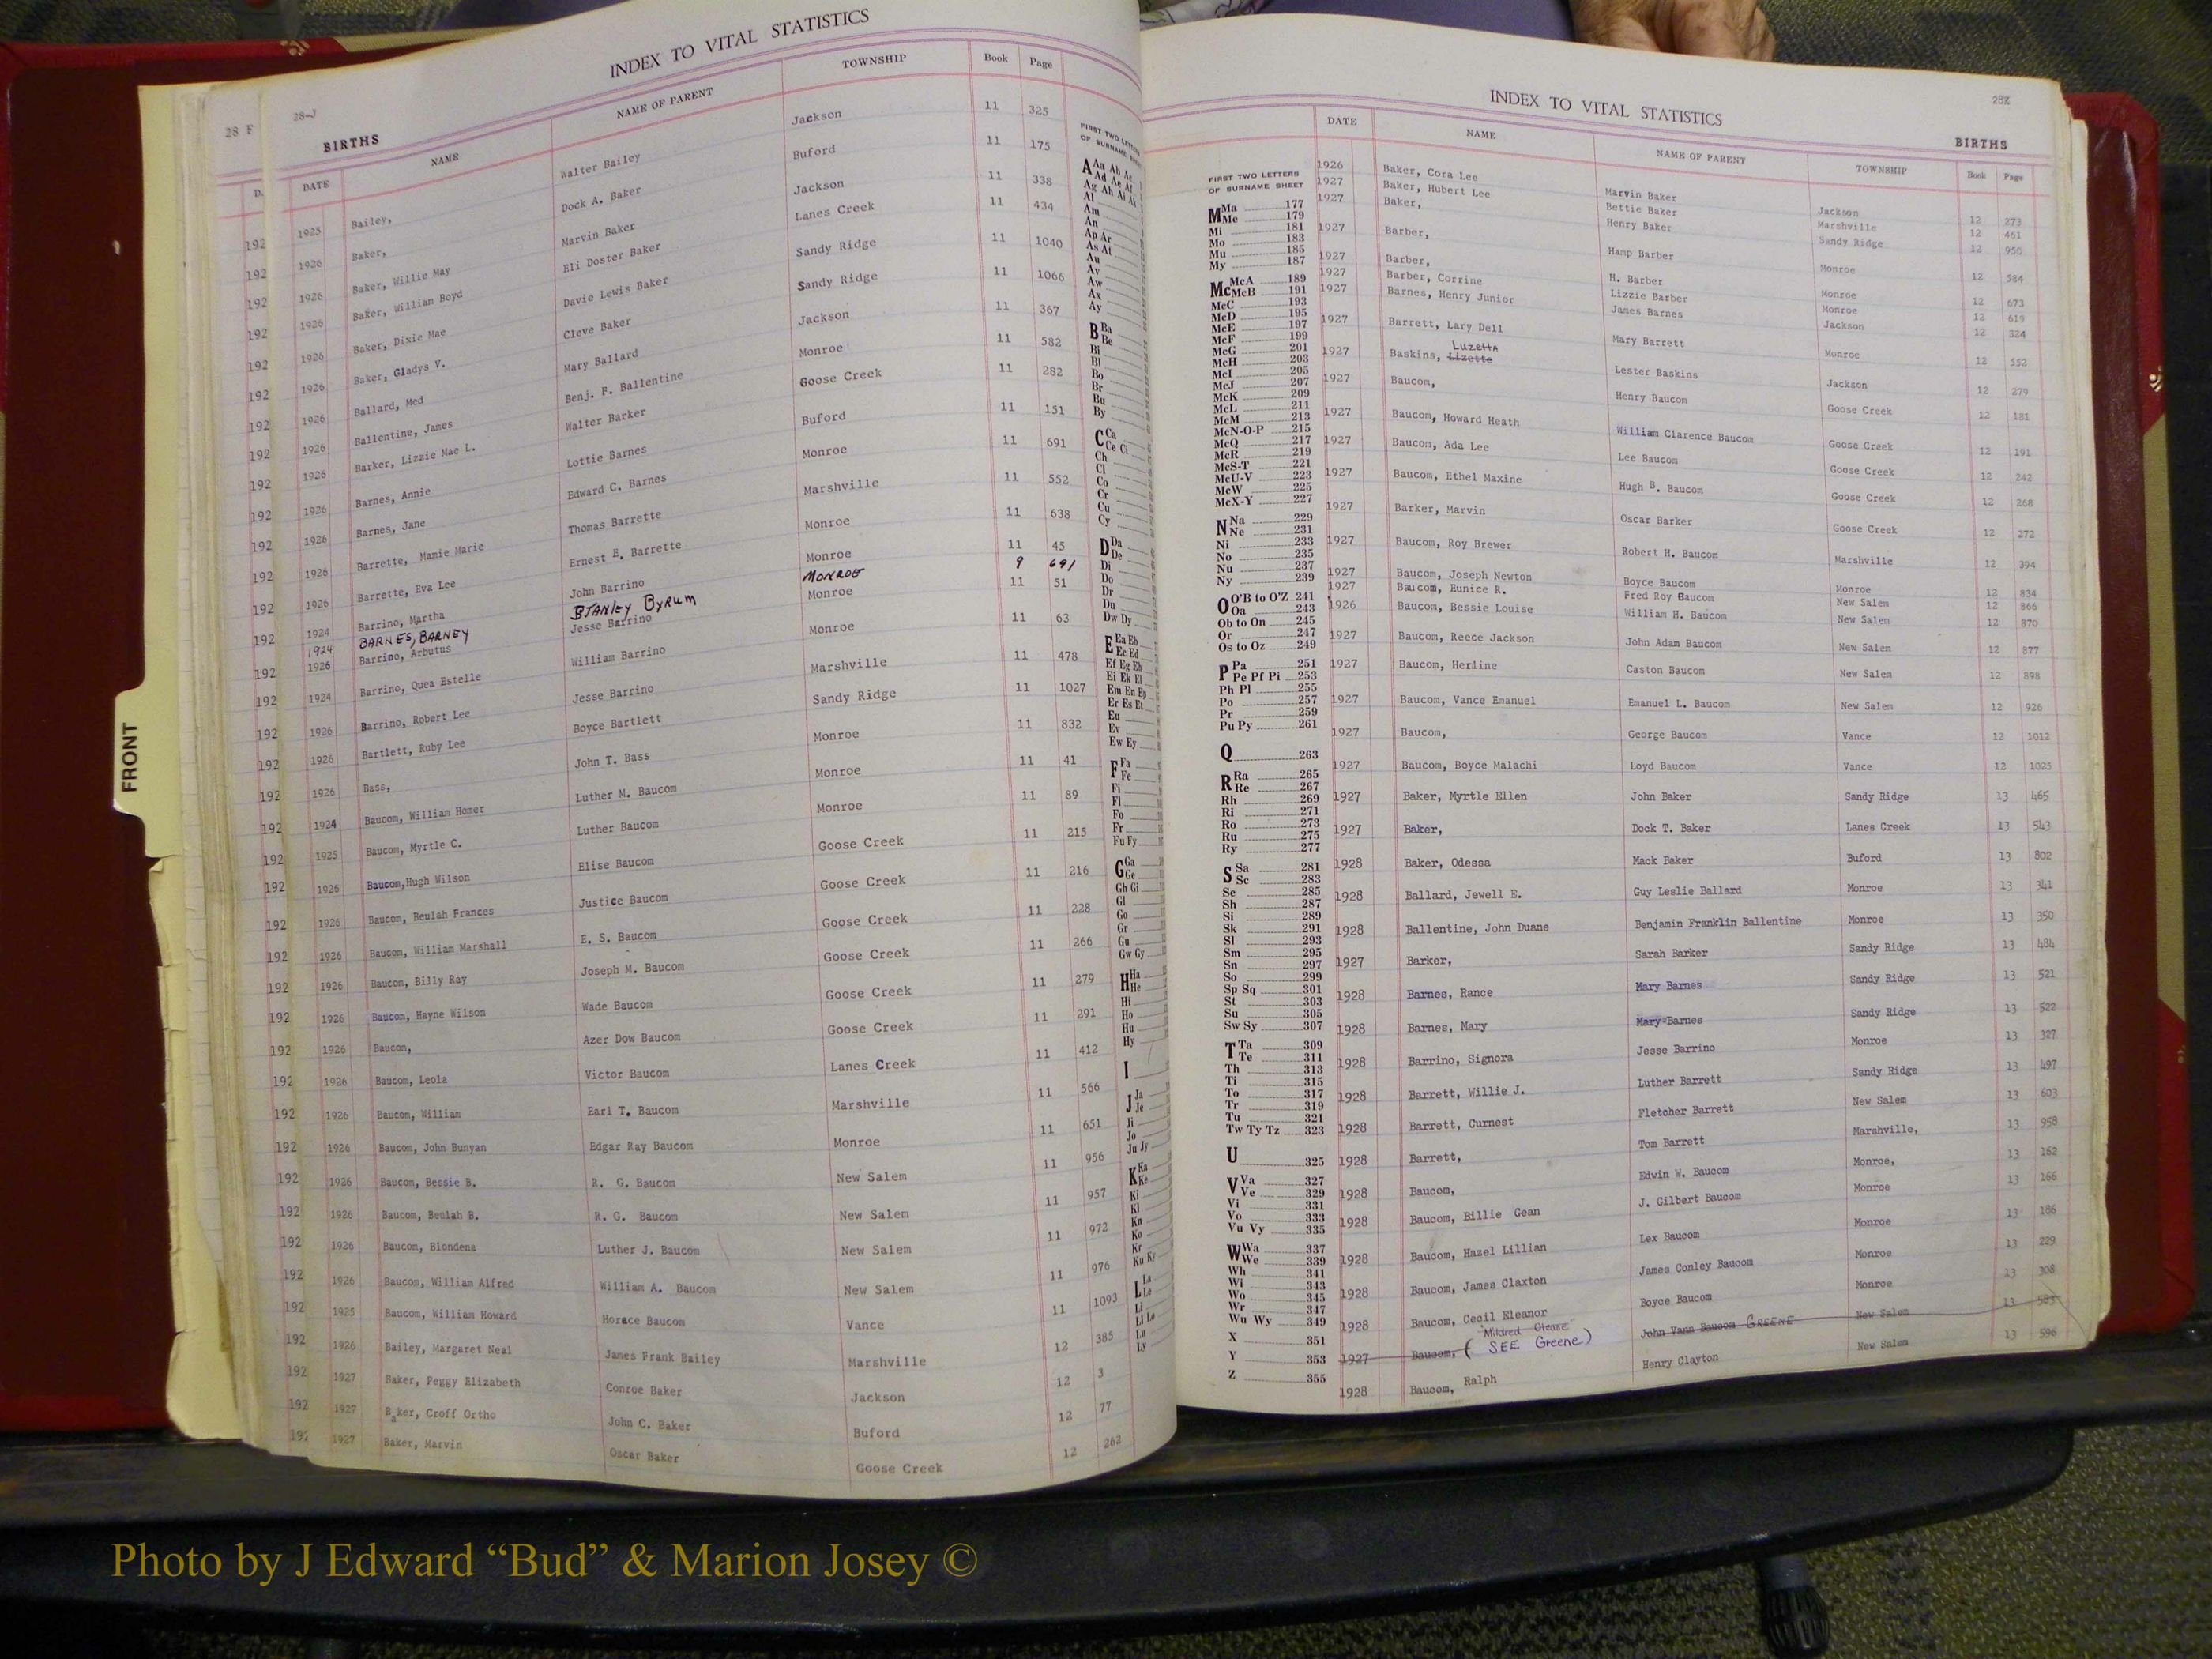 FRONT
28 F
28-J
INDEX TO VITAL STATISTICS
BIRTHS
DATE NAME NAME OF PARENT TOWNSHIP Book Page
1925 Bailey, Walter Bailey Jackson 11 325
1926 Baker, Dock A. Baker Buford 11 175
1926 Baker, Willie May Marvin Baker Jackson 11 338
1926 Baker, William Boyd Eli Doster Baker Lanes Creek 11 434
1926 Baker, Dixie Mae Davie Lewis Baker Sandy Ridge 11 1040
1926 Baker, Gladys V. Cleve Baker Sandy Ridge 11 1066
1926 Ballard, Med Mary Ballard Jackson 11 367
1926 Ballentine, James Benj. F. Ballentine Monroe 11 582
1926 Barker, Lizzie Mae L. Walter Barker Goose Creek 11 282
1926 Barnes, Annie Lottie Barnes Buford 11 151
1926 Barnes, Jane Edward C. Barnes Monroe 11 691
1926 Barrette, Mamie Marie Thomas Barrette Marshville 11 552
1926 Barrette, Eva Lee Ernest E. Barrette Monroe 11 638
1924 Barrino, Martha John Barrino Monroe 11 45
1924 BARNES, BARNEY STANLEY BYRUM MONROE 9 691
1926 Barrino, Arbutus Jesse Barrino Monroe 11 51
1924 Barrino, Quea Estelle William Barrino Monroe 11 63
1926 Barrino, Robert Lee Jesse Barrino Marshville 11 478
1926 Bartlett, Ruby Lee Boyce Bartlett Sandy Ridge 11 1027
1926 Bass, John T. Bass Monroe 11 832
1924 Baucom, William Homer Luther M. Baucom Monroe 11 41
1925 Baucom, Myrtle C. Luther Baucom Monroe 11 89
1926 Baucom,Hugh Wilson Elise Baucom Goose Creek 11 215
1926 Baucom, Beulah Frances Justice Baucom Goose Creek 11 216
1926 Baucom, William Marshall E. S. Baucom Goose Creek 11 228
1926 Baucom, Billy Ray Joseph M. Baucom Goose Creek 11 266
1926 Baucom, Hayne Wilson Wade Baucom Goose Creek 11 279
1926 Baucom, Azer Dow Baucom Goose Creek 11 291
1926 Baucom, Leola Victor Baucom Lanes Creek 11 412
1926 Baucom, William Earl T. Baucom Marshville 11 566
1926 Baucom, John Bunyan Edgar Ray Baucom Monroe 11 651
1926 Baucom, Bessie B. R. G. Baucom New Salem 11 956
1926 Baucom, Beulah B. R. G. Baucom New Salem 11 957
1926 Baucom, Blondena Luther J. Baucom New Salem 11 972
1926 Baucom, William Alfred William A. Baucom New Salem 11 976
1925 Baucom, William Howard Horace Baucom Vance 11 1093
1926 Bailey, Margaret Neal James Frank Bailey Marshville 12 385
1927 Baker, Peggy Elizabeth Conroe Baker Jackson 12 3
1927 Baker, Croff Ortho John C. Baker Buford 12 77
1927 Baker, Marvin Oscar Baker Goose Creek 12 262
FIRST TWO LETTERS
OF SURNAME SHEET
INDEX TO VITAL STATISTICS
28K
BIRTHS
DATE NAME NAME OF PARENT TOWNSHIP Book Page
1926 Baker, Cora Lee Marvin Baker Jackson 12 273
1927 Baker, Hubert Lee Bettie Baker Marshville 12 461
1927 Baker, Henry Baker Sandy Ridge 12 950
1927 Barber, Hamp Barber Monroe 12 584
1927 Barber, H. Barber Monroe 12 673
1927 Barber, Corrine Lizzie Barber Monroe 12 619
1927 Barnes, Henry Junior James Barnes Jackson 12 324
1927 Barrett, Lary Dell Mary Barrett Monroe 12 552
Luzetta
1927 Baskins, Lizette Lester Baskins Jackson 12 279
1927 Baucom, Henry Baucom Goose Creek 12 181
1927 Baucom, Howard Heath William Clarence Baucom Goose Creek 12 191
1927 Baucom, Ada Lee Lee Baucom Goose Creek 12 242
1927 Baucom, Ethel Maxine Hugh B. Baucom Goose Creek 12 268
1927 Barker, Marvin Oscar Barker Goose Creek 12 272
1927 Baucom, Roy Brewer Robert H. Baucom Marshville 12 394
1927 Baucom, Joseph Newton Boyce Baucom Monroe 12 834
1927 Baucom, Eunice R. Fred Roy Baucom New Salem 12 866
1926 Baucom, Bessie Louise William H. Baucom New Salem 12 870
1927 Baucom, Reece Jackson John Adam Baucom New Salem 12 877
1927 Baucom, Herline Caston Baucom New Salem 12 898
1927 Baucom, Vance Emanuel Emanuel L. Baucom New Salem 12 926
1927 Baucom, George Baucom Vance 12 1012
1927 Baucom, Boyce Malachi Loyd Baucom Vance 12 1023
1927 Baker, Myrtle Ellen John Baker Sandy Ridge 13 465
1927 Baker, Dock T. Baker Lanes Creek 13 543
1928 Baker, Odessa Mack Baker Buford 13 802
1928 Ballard, Jewell E. Guy Leslie Ballard Monroe 13 341
1928 Ballentine, John Duane Benjamin Franklin Ballentine Monroe 13 350
1927 Barker, Sarah Barker Sandy Ridge 13 484
1928 Barnes, Rance Mary Barnes Sandy Ridge 13 521
1928 Barnes, Mary Mary Barnes Sandy Ridge 13 522
1928 Barrino, Signora Jesse Barrino Monroe 13 327
1928 Barrett, Willie J. Luther Barrett Sandy Ridge 13 497
1928 Barrett, Curnest Fletcher Barrett New Salem 13 603
1928 Barrett, Tom Barrett Marshville, 13 958
1928 Baucom, Edwin W. Baucom Monroe, 13 162
1928 Baucom, Billie Gean J. Gilbert Baucom Monroe 13 166
1928 Baucom, Hazel Lillian Lex Baucom Monroe 13 186
1928 Baucom, James Claxton James Conley Baucom Monroe 13 229
1928 Baucom, Cecil Eleanor Boyce Baucom Monroe 13 308
1927 Baucom, ( SEE Greene) John Vann Baucom GREENE New Salem 13 583
1928 Baucom, Ralph Henry Clayton New Salem 13 596
FIRST TWO LETTERS
OF SURNAME SHEET
M Ma 177
Me 179
Mi 181
Mo 183
Mu 185
My 187
Mc McA 189
McB 191
McC 193
McD 195
McE 197
McF 199
McG 201
McH 203
McI 205
McJ 207
McK 209
McL 211
McM 213
McN-O-P 215
McQ 217
McR 219
McS-T 221
McU-V 223
McW 225
McX-Y 227
N Na 229
Ne 231
Ni 233
No 235
Nu 237
Ny 239
O O'B to O'Z 241
Oa 243
Ob to On 245
Or 247
Os to Oz 249
P Pa 251
Pe Pf Pi 253
Ph Pl 255
Po 257
Pr 259
Pu Py 261
Q 263
R Ra 265
Re 267
Rh 269
Ri 271
Ro 273
Ru 275
Ry 277
S Sa 281
Sc 283
Se 285
Sh 287
Si 289
Sk 291
Sl 293
Sm 295
Sn 297
So 299
Sp Sq 301
St 303
Su 305
Sw Sy 307
T Ta 309
Te 311
Th 313
Ti 315
To 317
Tr 319
Tu 321
Tw Ty Tz 323
U 325
V Va 327
Ve 329
Vi 331
Vo 333
Vu Vy 335
W Wa 337
We 339
Wh 341
Wi 343
Wo 345
Wr 347
Wu Wy 349
X 351
Y 353
Z 355
Photo by J Edward “Bud” & Marion Josey ©